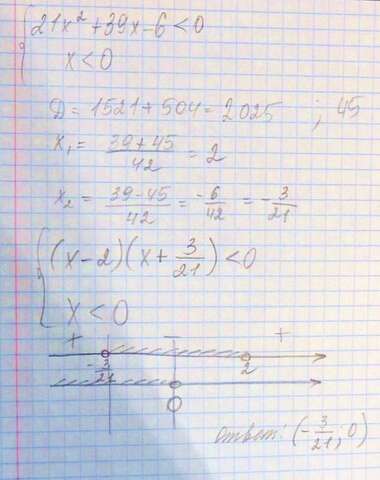 21x² + 39x - 6 < 0
x < 0
D = 1521 + 504 = 2025 ; 45
x₁ = (39 + 45)/42 = 2
x₂ = (39 - 45)/42 = -6/42 = -3/21
(x - 2)(x + 3/21) < 0
x < 0
+ - +
-3/21 2
0
ответ: (-3/21; 0)